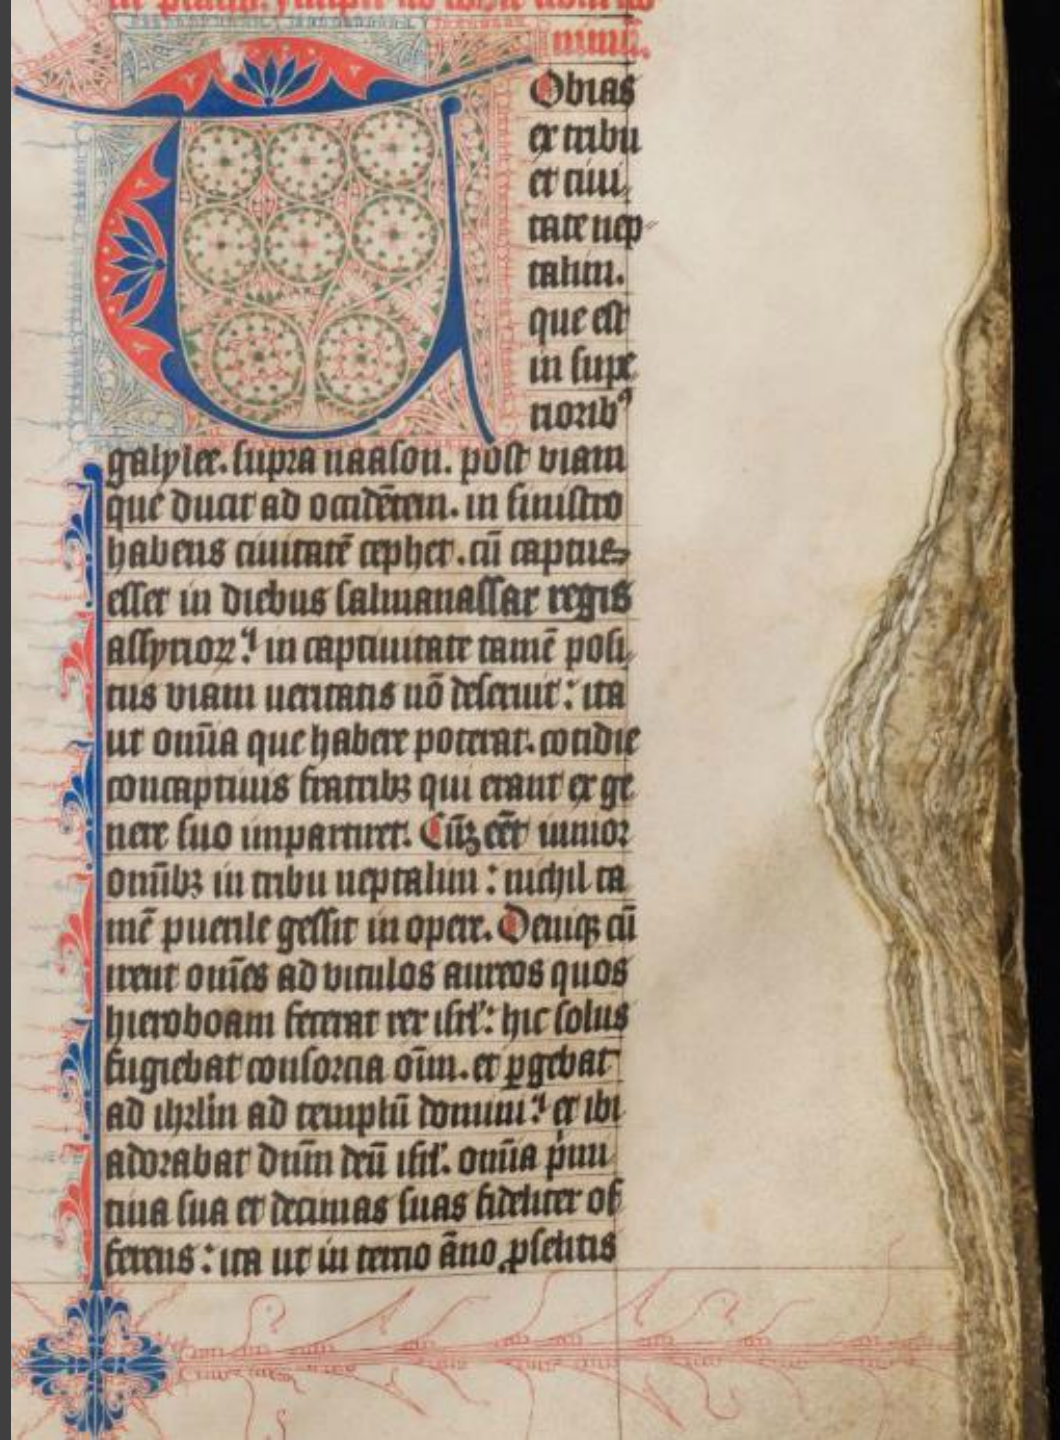 mine.
Tobias
ex tribu
et ciui
tate nep
talim.
que est
in supe
riorib⁹
galylee. supra naason. post viam
que ducit ad occidētem. in sinistro
habens ciuitatē sephet. cū captus
esset in diebus salmanassar regis
assyrioꝝ: in captiuitate tamē posi
tus viam ueritatis nō deseruit: ita
ut om̄ia que habere poterat. cotidie
concaptiuis fratribꝫ qui erant ex ge
nere suo impartiret. Cūqꝫ eēt iunior
om̄ibꝫ in tribu neptalim: nichil ta
mē puerile gessit in opere. Deniqꝫ cū
irent om̄es ad vitulos aureos quos
hieroboam fecerat rex isrl': hic solus
fugiebat consorcia oīm. et ꝑgebat
ad ihrlm ad templū domini: et ibi
adorabat dn̄m deū isrl'. om̄ia pͥmi
tiua sua et decimas suas fideliter of
ferens: ita ut in tercio āno ꝓselitis